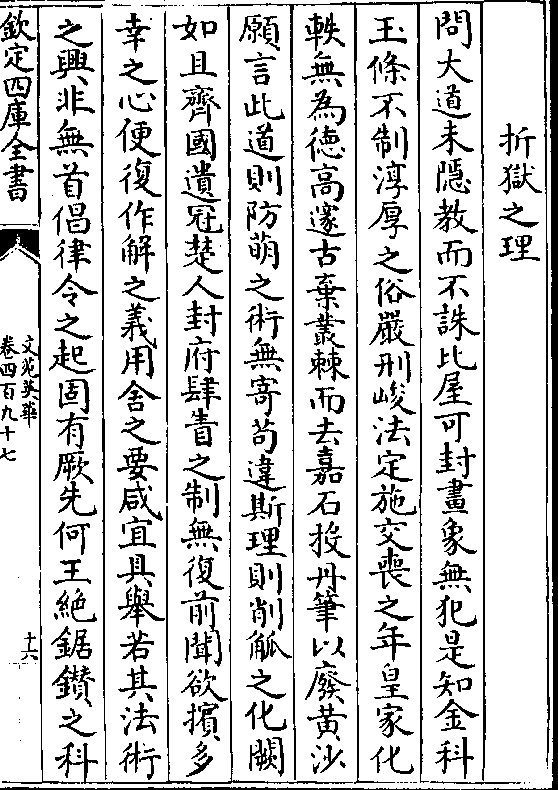 折獄之理
問大道未隱教而不誅比屋可封畫象無犯是知金科
玉條不制淳厚之俗嚴刑峻法定施交喪之年皇家化
軼無為徳髙邃古棄叢棘而去嘉石投丹筆以廢黄沙
願言此道則防萌之術無寄茍違斯理則削觚之化闕
如且齊國遺冠楚人封府肆眚之制無復前聞欲擯多
幸之心便復作解之義用舍之要咸宜具舉若其法術
之興非無首倡律令之起固有厥先何王絶鋸鑚之科
欽定四庫全書
文苑英華
卷四百九十七
十六